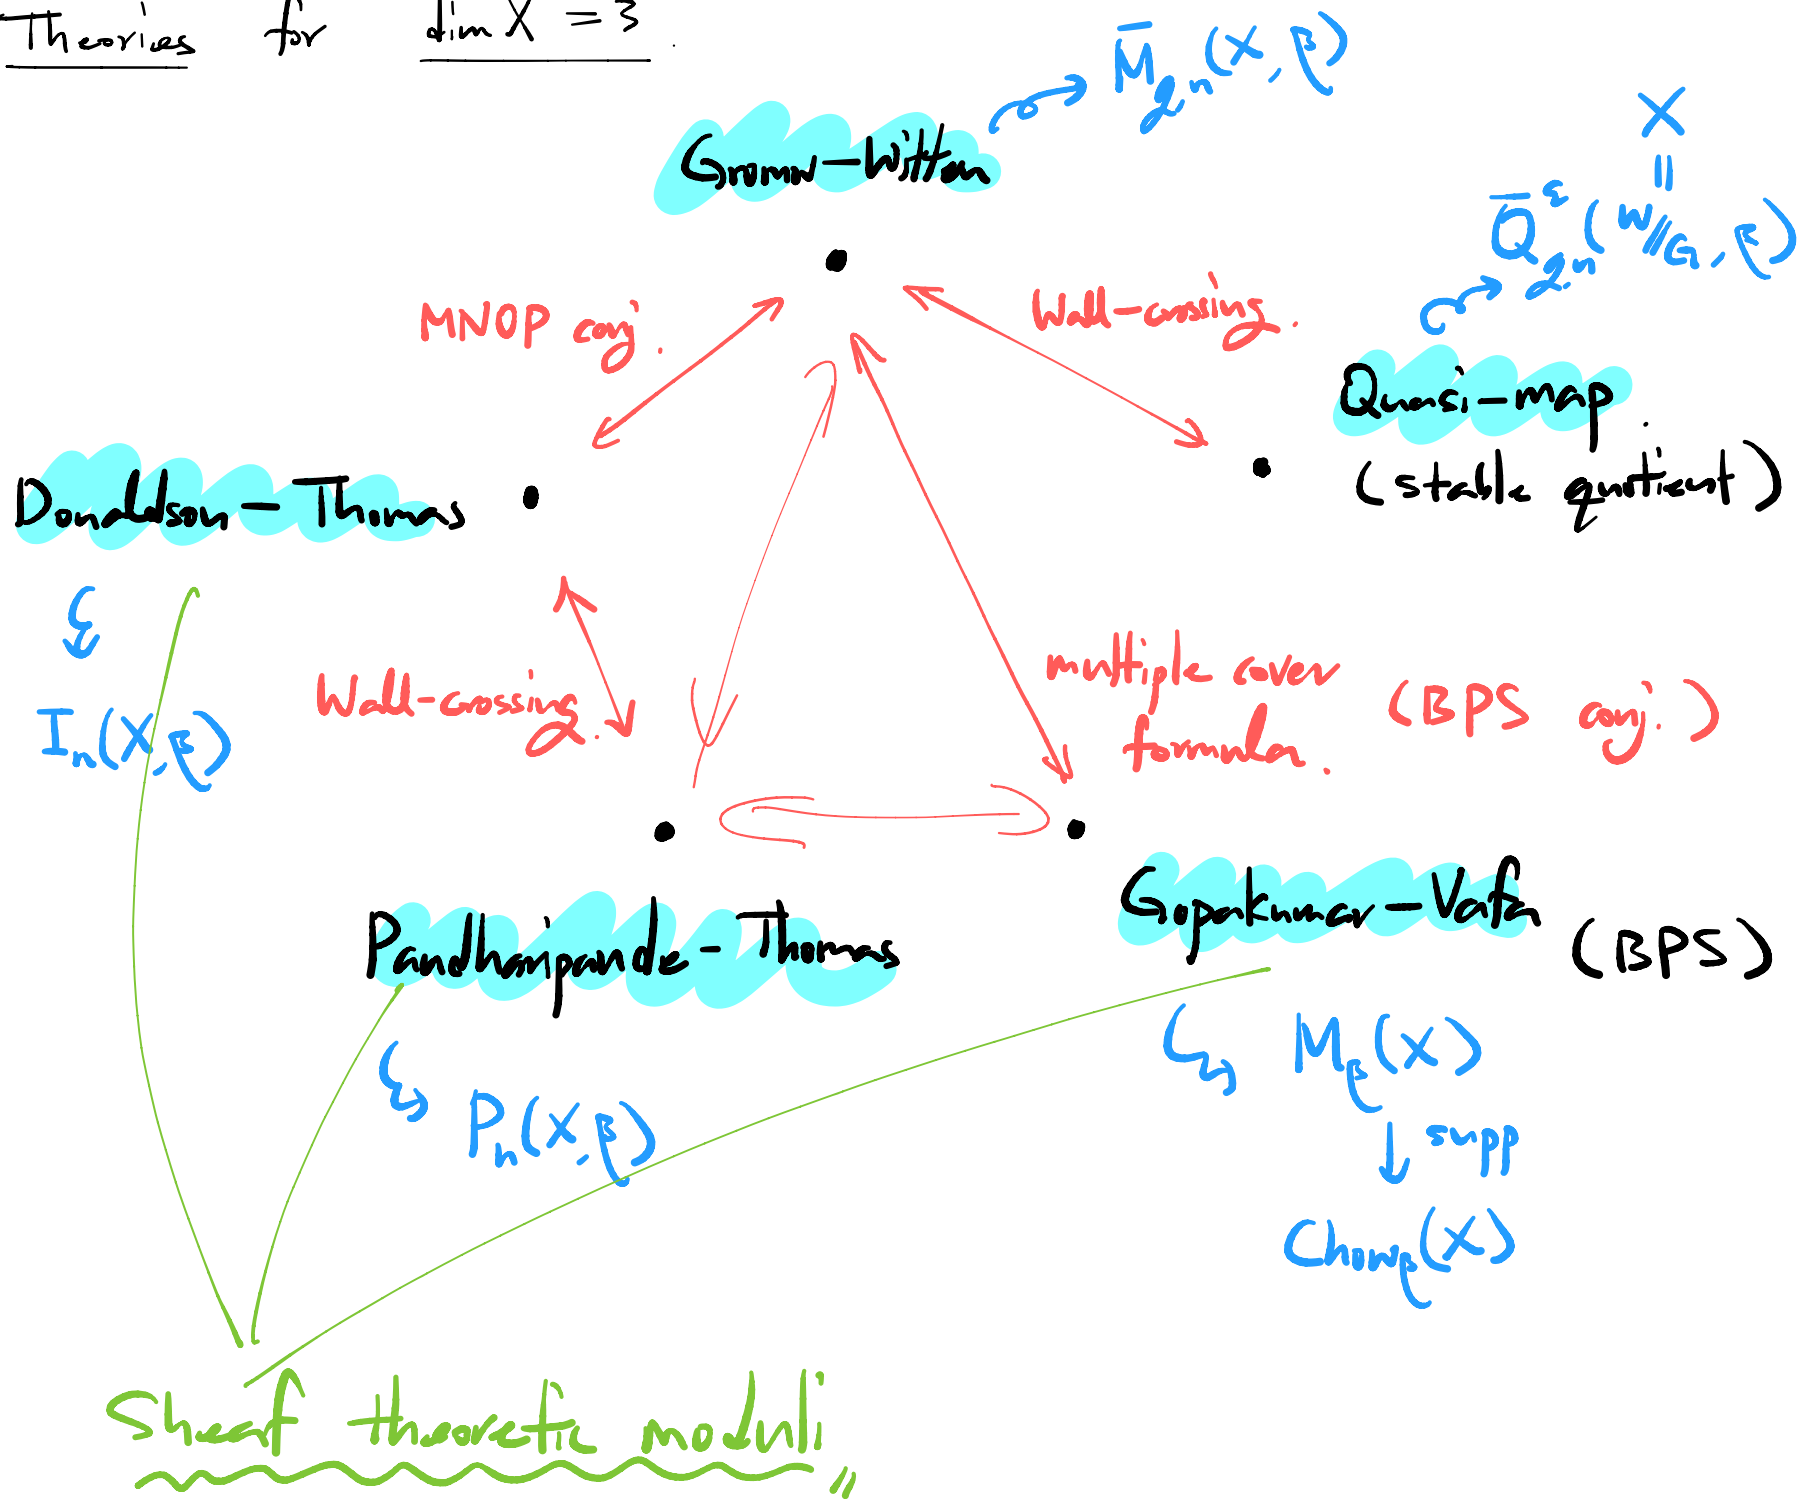 Theories for dim X = 3.
M̄g,n(X, β)
Gromov-Witten
X
||
Q̄^ε g,n(W//G, β)
MNOP conj.
Wall-crossing.
Quasi-map.
(stable quotient)
Donaldson-Thomas
In(X, β)
Wall-crossing.
multiple cover
formula.
(BPS conj.)
Pandharipande-Thomas
Gopakumar-Vafa
(BPS)
Pn(X, β)
Mβ(X)
↓ supp
Chowβ(X)
Sheaf theoretic moduli